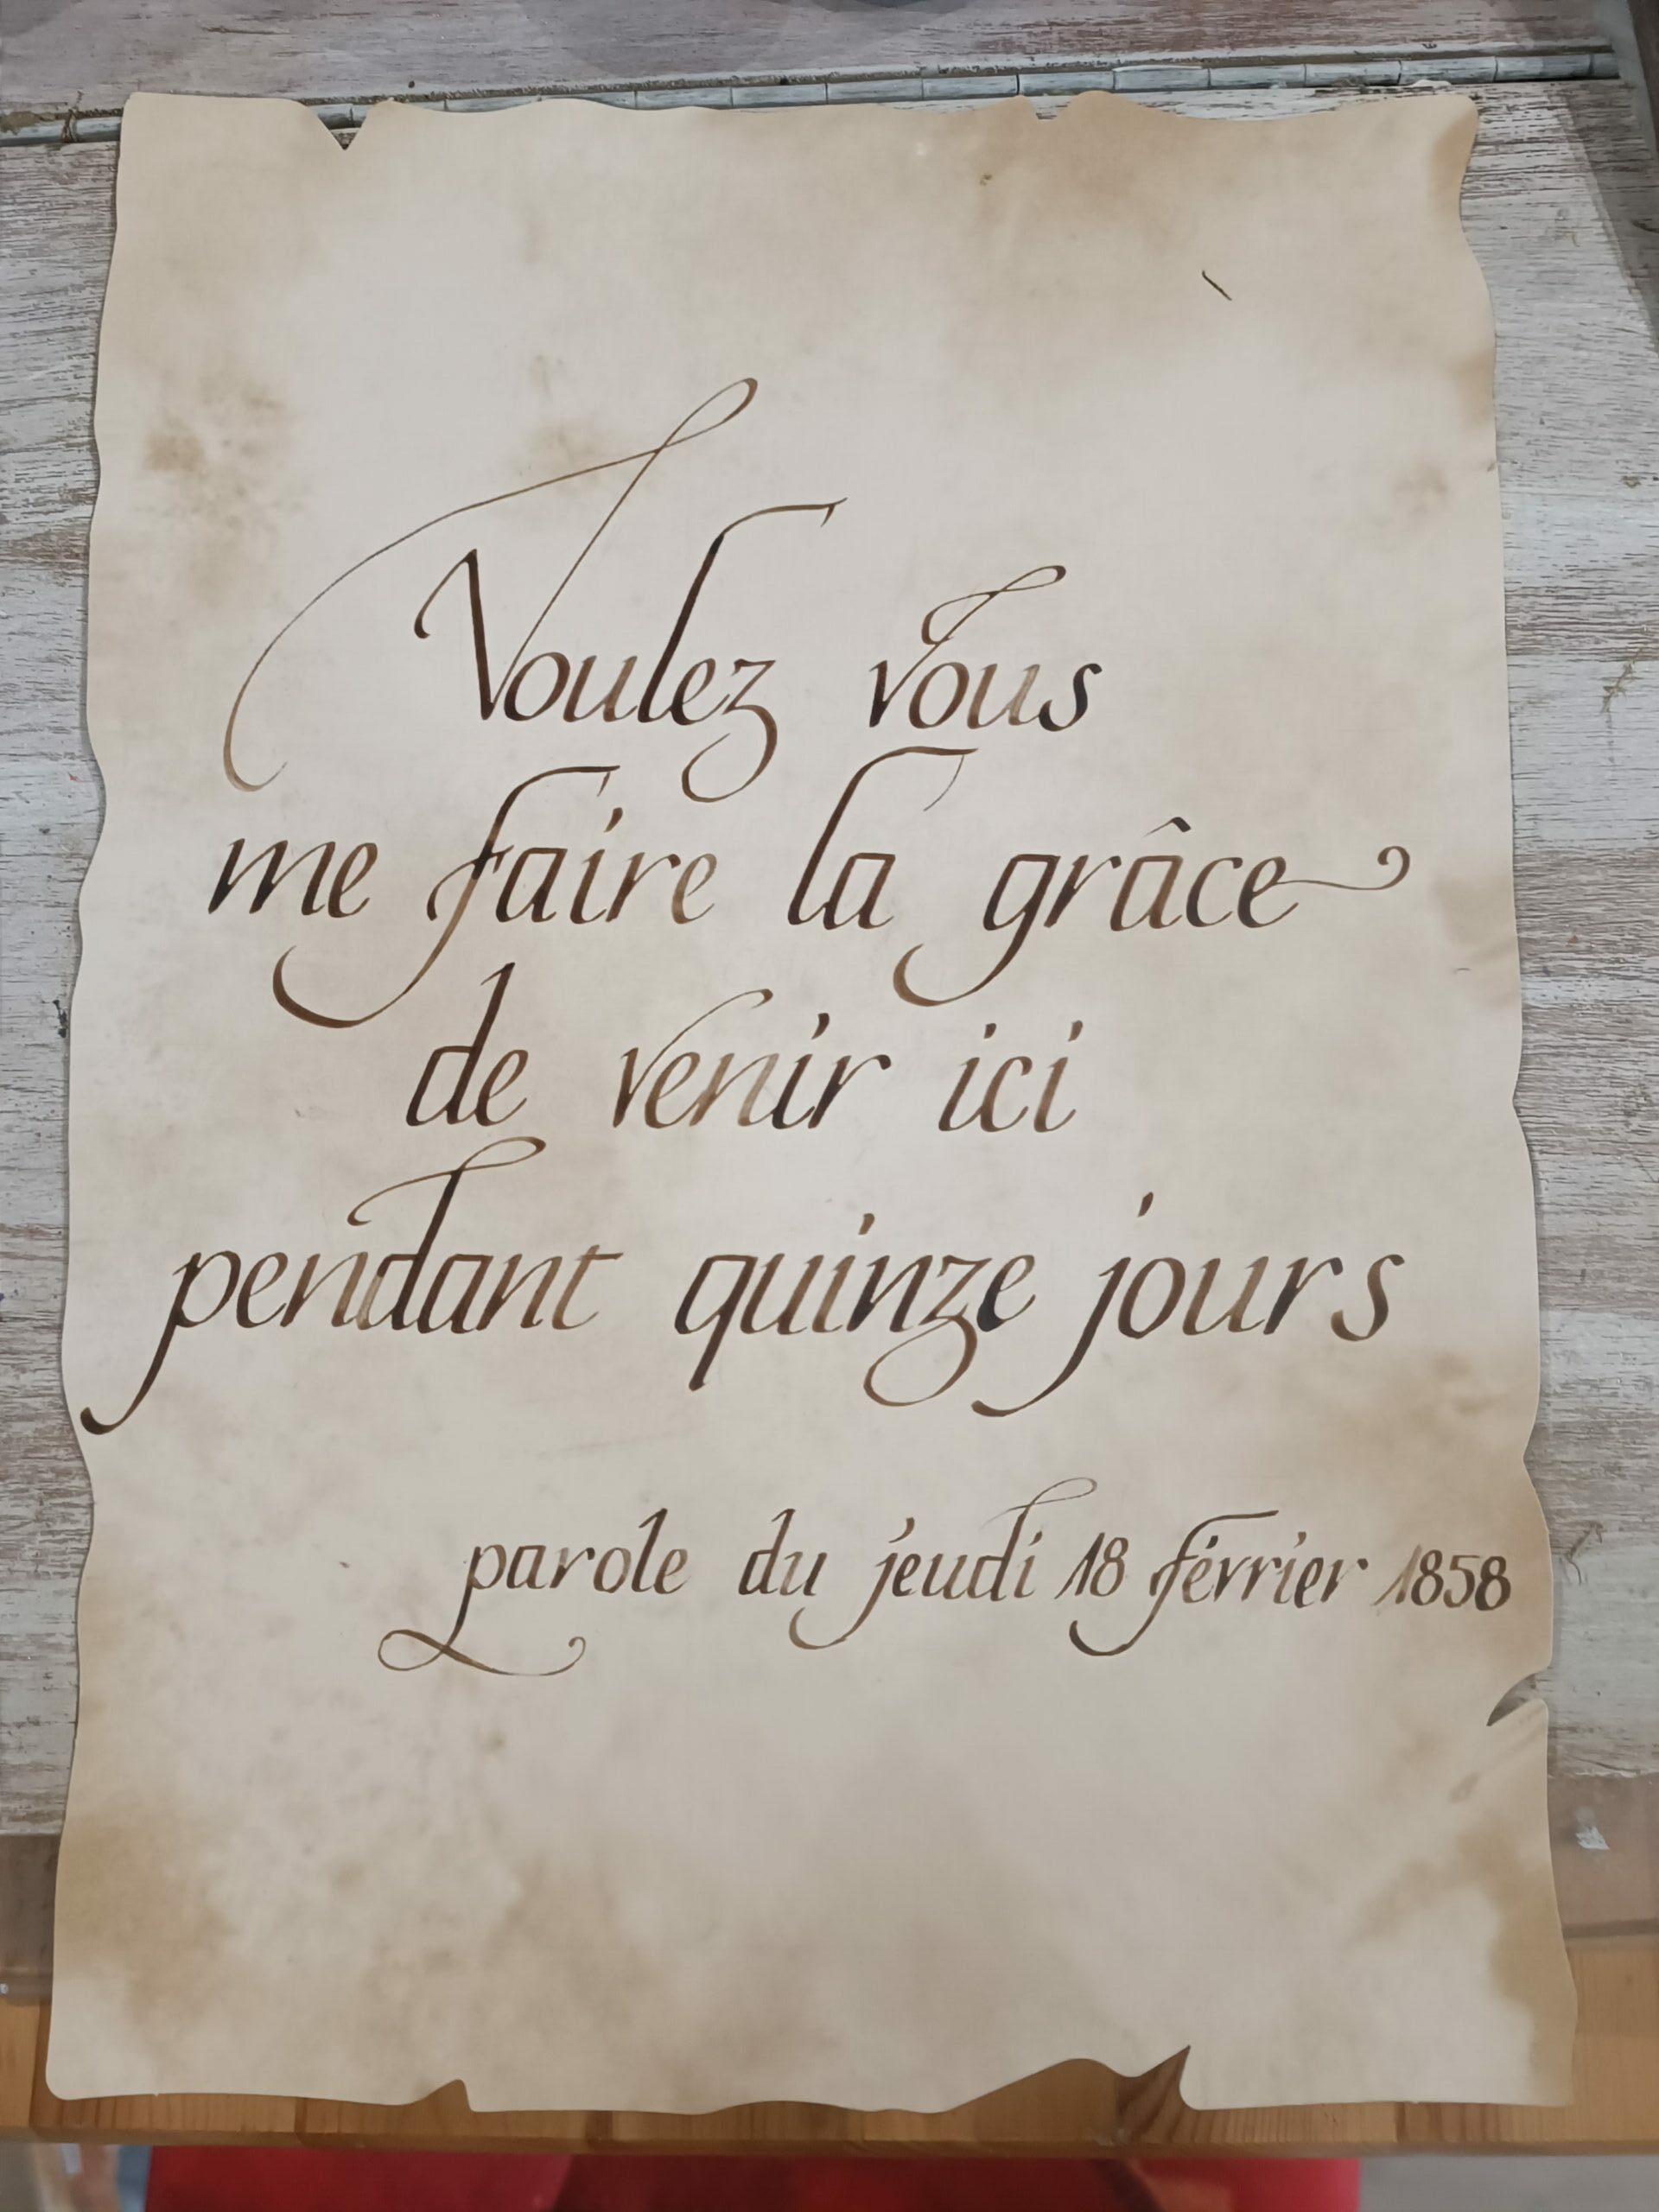 Voulez vous
me faire la grâce
de venir ici
pendant quinze jours
parole du jeudi 18 février 1858